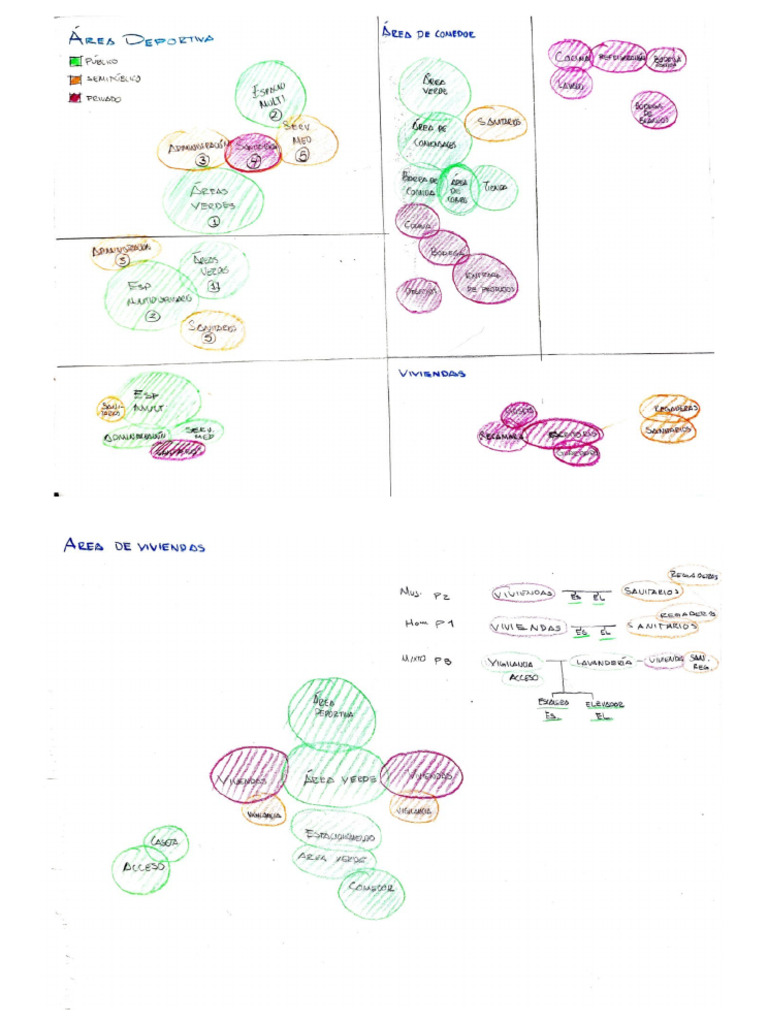 ÁREA DEPORTIVA
PÚBLICO
SEMIPÚBLICO
PRIVADO
ESPACIO
MULTI
②
ADMINISTRACIÓN
③
④
SERV.
MED
⑤
ÁREAS
VERDES
①
ADMINISTRACIÓN
③
ÁREAS
VERDES
①
ESP
②
SANITARIOS
⑤
ESP
MULT
SANI-
TARIOS
ADMINISTRACIÓN
SERV.
MED
ÁREA DE COMEDOR
ÁREA
VERDE
SANITARIOS
ÁREA DE
COMENSALES
BARRA DE
COMIDA
ÁREA
DE
COME
TIENDA
COCINA
BODEGA
DE PRODUCTOS
COCINA
REFRIGERACIÓN
BODEGA
LAVADO
BODEGA
DE
BLANCOS
VIVIENDAS
RECAMARA
REGADERAS
SANITARIOS
AREA DE VIVIENDAS
MUJ. P2
VIVIENDAS
ES
EL
SANITARIOS
REGADERAS
HOM P1
VIVIENDAS
ES
EL
SANITARIOS
REGADERAS
MIXTO PB
VIGILANCIA
ACCESO
LAVANDERÍA
VIVIENDA
SAN.
REG.
ELEVADOR
ES.
EL
ÁREA
DEPORTIVA
VIVIENDAS
ÁREA VERDE
VIVIENDAS
VIGILANCIA
VIGILANCIA
ESTACIONAMIENTO
AREA VERDE
COMEDOR
CASETA
ACCESO